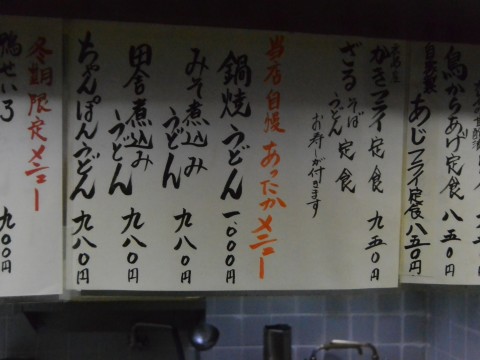 鳥からあげ定食 八五〇円
自家製
あじフライ定食 八五〇円
かきフライ定食 九五〇円
ざるそばうどん定食
お寿しが付きます
当店自慢 あったかメニュー
鍋焼うどん 一、〇〇〇円
みそ煮込みうどん 九八〇円
田舎煮込みうどん 九八〇円
ちゃんぽんうどん 九八〇円
冬期限定メニュー
鴨せいろ 九〇〇円